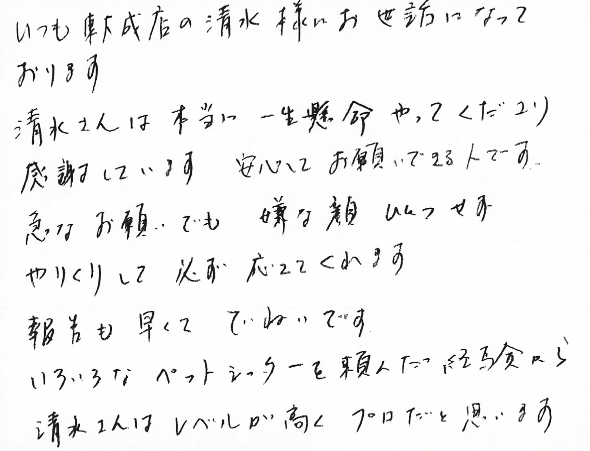 いつも 成店の清水様にお世話になって
おります
清水さんは本当に一生懸命やってくださり
感謝しています 安心してお願いできる人です。
急なお願いでも嫌な顔ひとつせず
やりくりして必ず応えてくれます
報告も早くてていねいです。
いろいろなペットシッターを頼んだ経験から
清水さんはレベルが高くプロだと思います